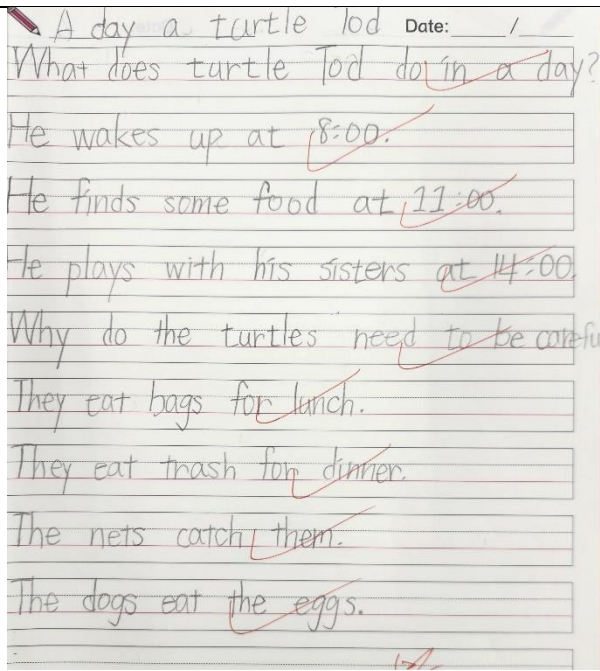 A day a turtle Tod Date: ___/___
What does turtle Tod do in a day?
He wakes up at 8:00.
He finds some food at 11:00.
He plays with his sisters at 14:00.
Why do the turtles need to be carefu
They eat bags for lunch.
They eat trash for dinner.
The nets catch them.
The dogs eat the eggs.